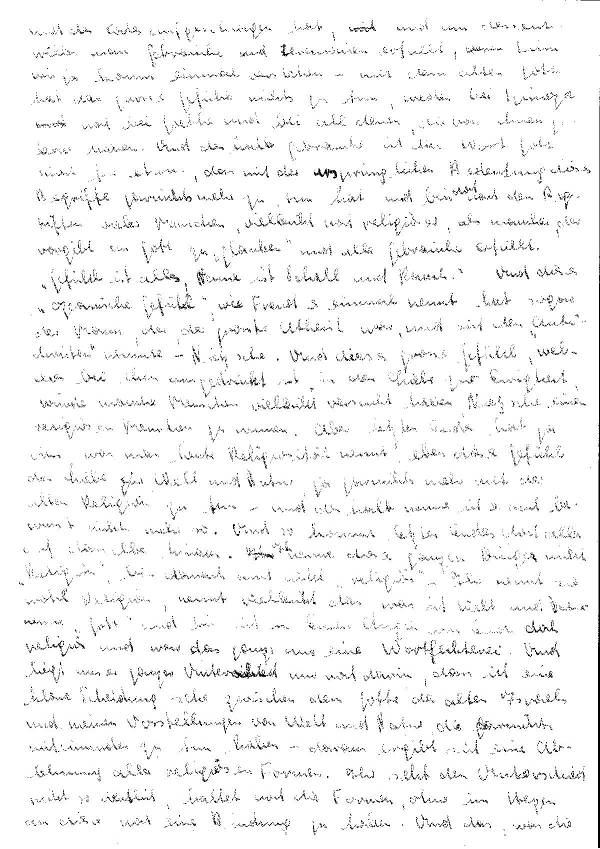 und der Codes aufgeschwungen hat, und um dessent-
willen man Gebräuche und Zeremonien erfüllt, denn kann
ich ja kommt einmal - mit dem alten Gotte
hat das grosse Gefühl nichts zu tun, weder bei Spinoza
noch bei Goethe und bei all denen, die von ihnen
lernen. Und der heute gebraucht ist das Wort Gott
nicht für etwas, das mit der ursprünglichen Bedeutung dieses
Begriffs garnichts mehr zu tun hat und bin nach den Be-
griffen vieler Menschen, vielleicht viel religiöser, als mancher, der
vorgibt an Gott zu "glauben" und alle Gebräuche erfüllt.
"Gefühl ist alles, Name ist Schall und Rauch." Und dieses
"ozeanische Gefühl", wie Freud es einmal nennt hat sogar
der Mann, der der grösste Atheist war, und sich den "Anti-
christen" nannte - Nietzsche. Und dieses grosse Gefühl, wel-
ches bei ihm ausgedrückt ist, in der Liebe zur Ewigkeit,
würde manche Menschen vielleicht veranlasst haben Nietzsche einen
religiösen Menschen zu nennen. Aber letzten Endes hat ja
das was man heute Religiosität nennt, eben dieses Gefühl
der Liebe für Welt und Natur ja garnichts mehr mit der
alten Religion zu tun - und deshalb nenne ich es auch be-
wusst nicht mehr so. Und so kommt letzten Endes doch alles
auf dasselbe hinaus. Ich nenne diese ganzen Dinge nicht
"Religion", und mich nicht "religiös" - Ihr nennt sie
wohl Religion, nennt vielleicht das was ich Welt und Natur
nenne, "Gott" und bin ich in Euren Augen nun eben doch
religiös und war das ganze nur eine Wortfechterei. Und
liegt unser ganzer Unterschied nur noch darin, dass ich eine
klare Scheidung sehe zwischen dem Gotte der alten Israels
und meinen Vorstellungen von Welt und Natur die garnichts
miteinander zu tun haben - daraus ergibt sich eine Ab-
lehnung aller religiösen Formen. Ihr seht den Unterschied
nicht so deutlich, haltet noch die Formen, ohne im Wegen
an diese noch eine Bindung zu haben. Und das, was die